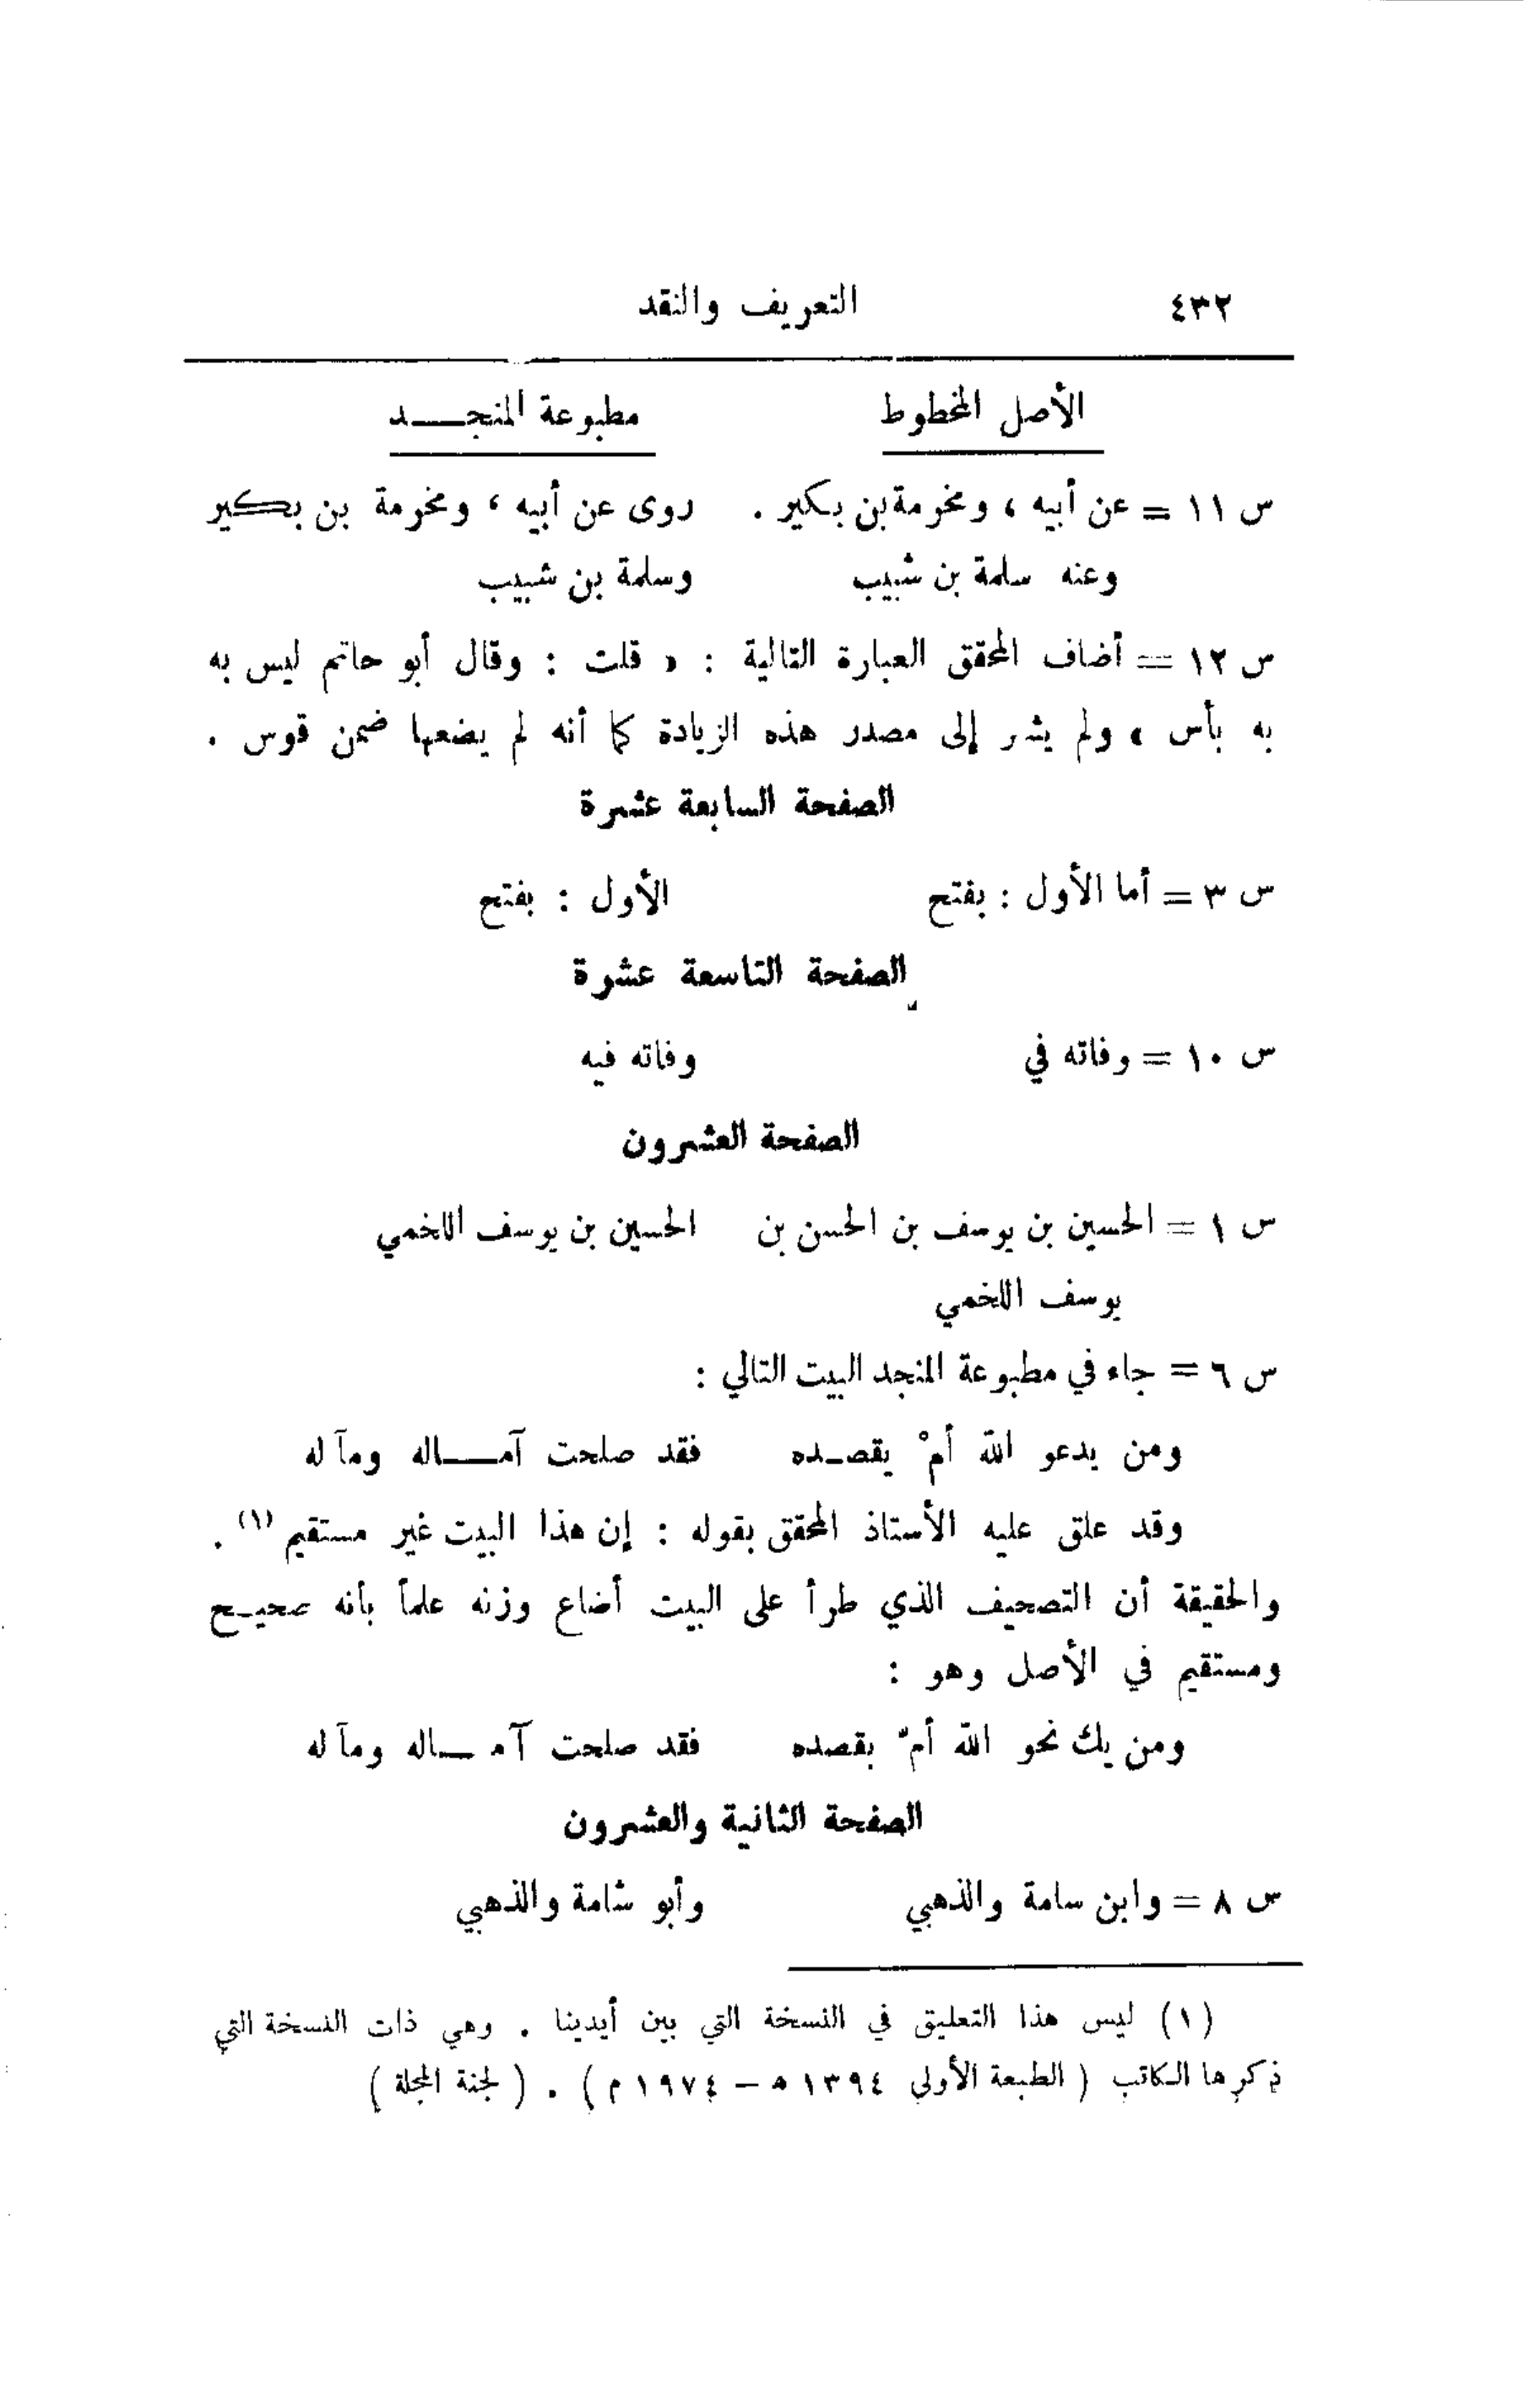 ٤٣٢ التعريف والنقد
الأصل المخطوط مطبوعة المنجـــد
س ١١ = عن أبيه ، ومخرمة بن بكير . روى عن أبيه ، ومخرمة بن بكير
وعنه سلمة بن شبيب وسلمة بن شبيب
س ١٢ = أضاف المحقق العبارة التالية : « قلت : وقال أبو حاتم ليس به
به بأس » ولم يشر إلى مصدر هذه الزيادة كما أنه لم يضعها ضمن قوس .
الصفحة السابعة عشرة
س ٣ = أما الأول : بفتح الأول : بفتح
الصفحة التاسعة عشرة
س ١٠ = وفاته في وفاته فيه
الصفحة العشرون
س ١ = الحسين بن يوسف بن الحسن بن الحسين بن يوسف اللخمي
يوسف اللخمي
س ٦ = جاء في مطبوعة المنجد البيت التالي :
ومن يدعو الله أمْ يقصـده فقد صلحت آمـــاله ومآله
وقد علق عليه الأستاذ المحقق بقوله : إن هذا البيت غير مستقيم (١) .
والحقيقة أن التصحيف الذي طرأ على البيت أضاع وزنه علماً بأنه صحيـح
ومستقيم في الأصل وهو :
ومن يك نحو الله أمّ بقصده فقد صلحت آمـــاله ومآله
الصفحة الثانية والعشرون
س ٨ = وابن سامة والذهبي وأبو شامة والذهبي
(١) ليس هذا التعليق في النسخة التي بين أيدينا . وهي ذات النسخة التي
ذكرها الكاتب ( الطبعة الأولى ١٣٩٤ ه – ١٩٧٤ م ) . ( لجنة المجلة )